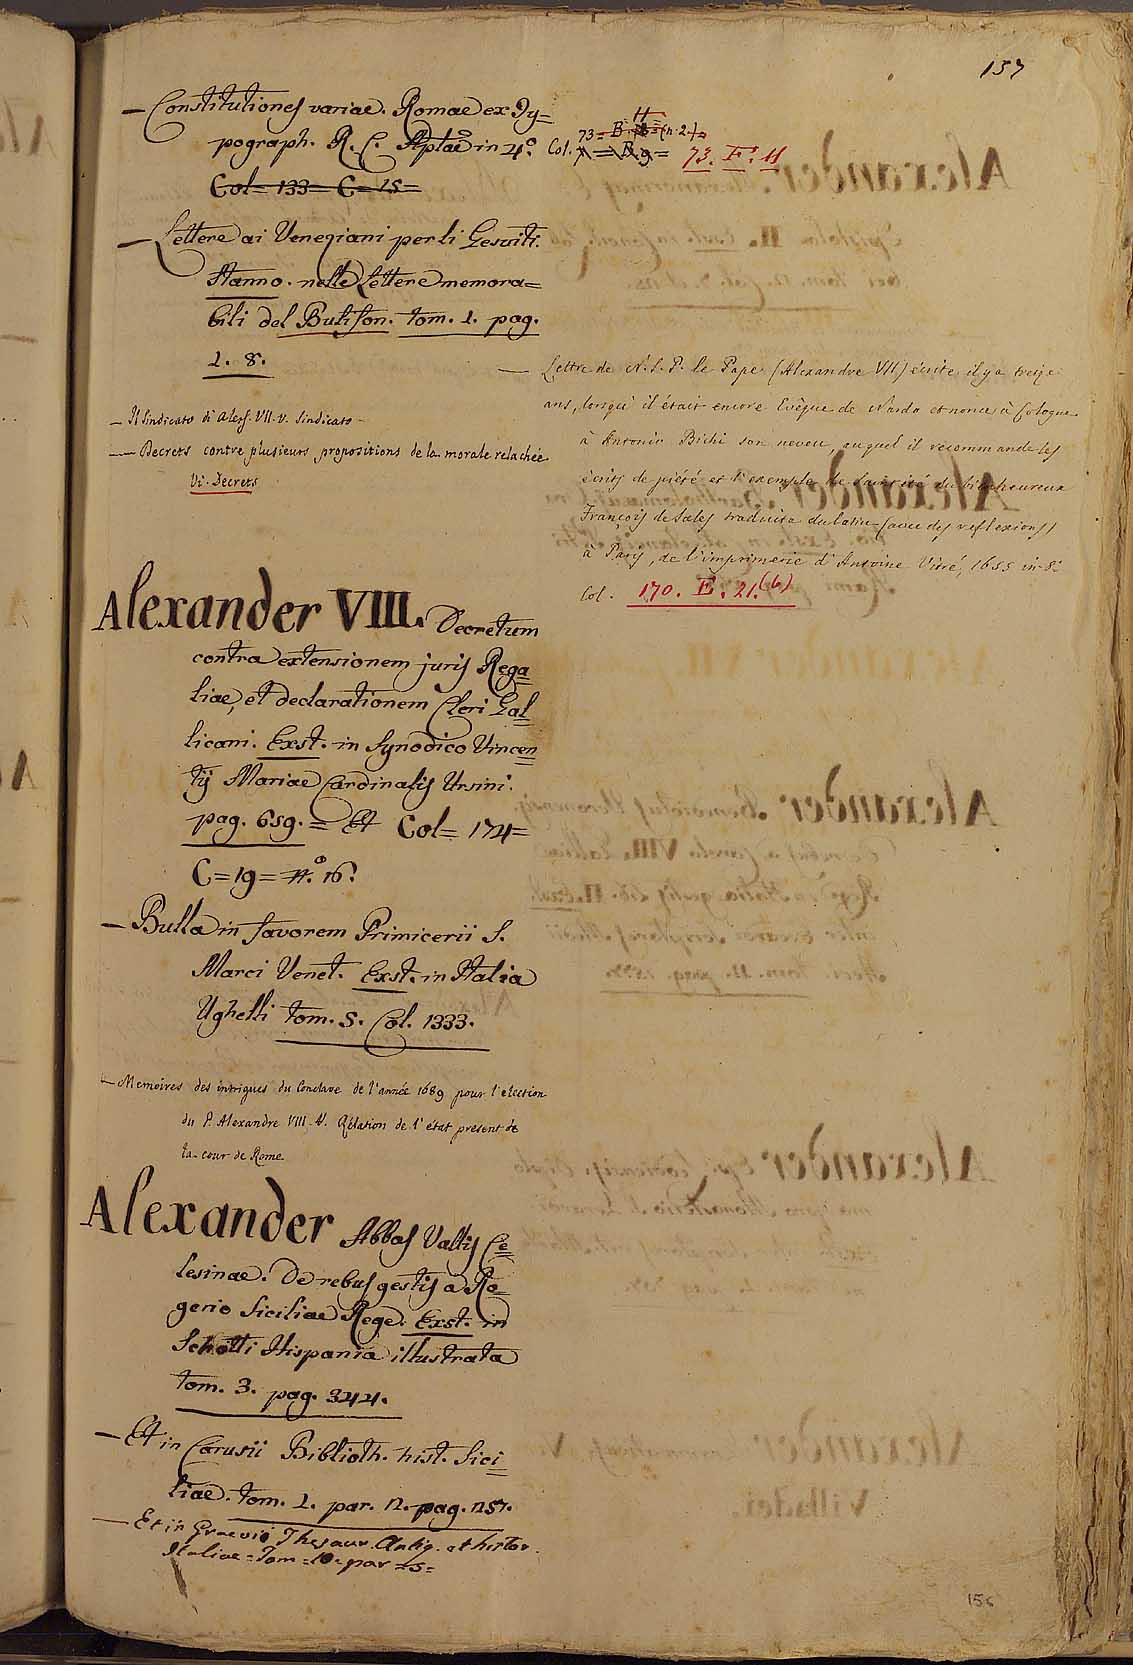 137
— Constitutiones variae. Romae ex Ty=
pograph. R. C. Aplae in 4.°
Col. 73. E. 11
Col= 133= C= 15=
— Lettere ai Veneziani per li Gesuiti.
Stanno. nelle Lettere memora=
bili del Bulifon. tom. 1. pag.
1. 8.
— Il Sindicato di Aless. VII. v. Sindicato
— Decrets contre plusieurs propositions de la morale relachée
Vi. Decrets
— Lettre de N. S. P. le Pape (Alexandre VII) écrite il y a treize
ans, lorsqu'il était encore Evêque de Nardo et nonce à Cologne
à Antonin Bichi son neveu, auquel il recommande les
écrits de piété et l'exemple de sainteté du bienheureux
François de Sales traduite du latin (avec des reflexions)
à Paris, de l'imprimerie d'Antoine Vitré, 1655 in-8.°
Col. 170. E. 21.(6)
Alexander VIII. Decretum
contra extensionem juris Rega=
liae, et declarationem Cleri Gal=
licani. Exst. in Synodico Vincen=
tij Mariae Cardinalis Ursini.
pag. 659. = Et Col= 174=
C=19= n.° 16.
— Bulla in favorem Primicerii S.
Marci Venet. Exst. in Italia
Ughelli tom. 5. Col. 1333.
— Memoires des intrigues du Conclave de l'année 1689 pour l'election
du P. Alexandre VIII. V. Rélation de l'état present de
la cour de Rome
Alexander Abbas Vallis Ce=
lesinae. De rebus gestis a Ro=
gerio Siciliae Rege. Exst. in
Schotti Hispania illustrata
tom. 3. pag. 344.
— Et in Carusii Biblioth. hist. Sici=
liae. tom. 1. par. 2. pag. 257.
— Et in Graevio Thesaur. Antiq. et histor.
Italiae= Tom= 10= par =5=
156